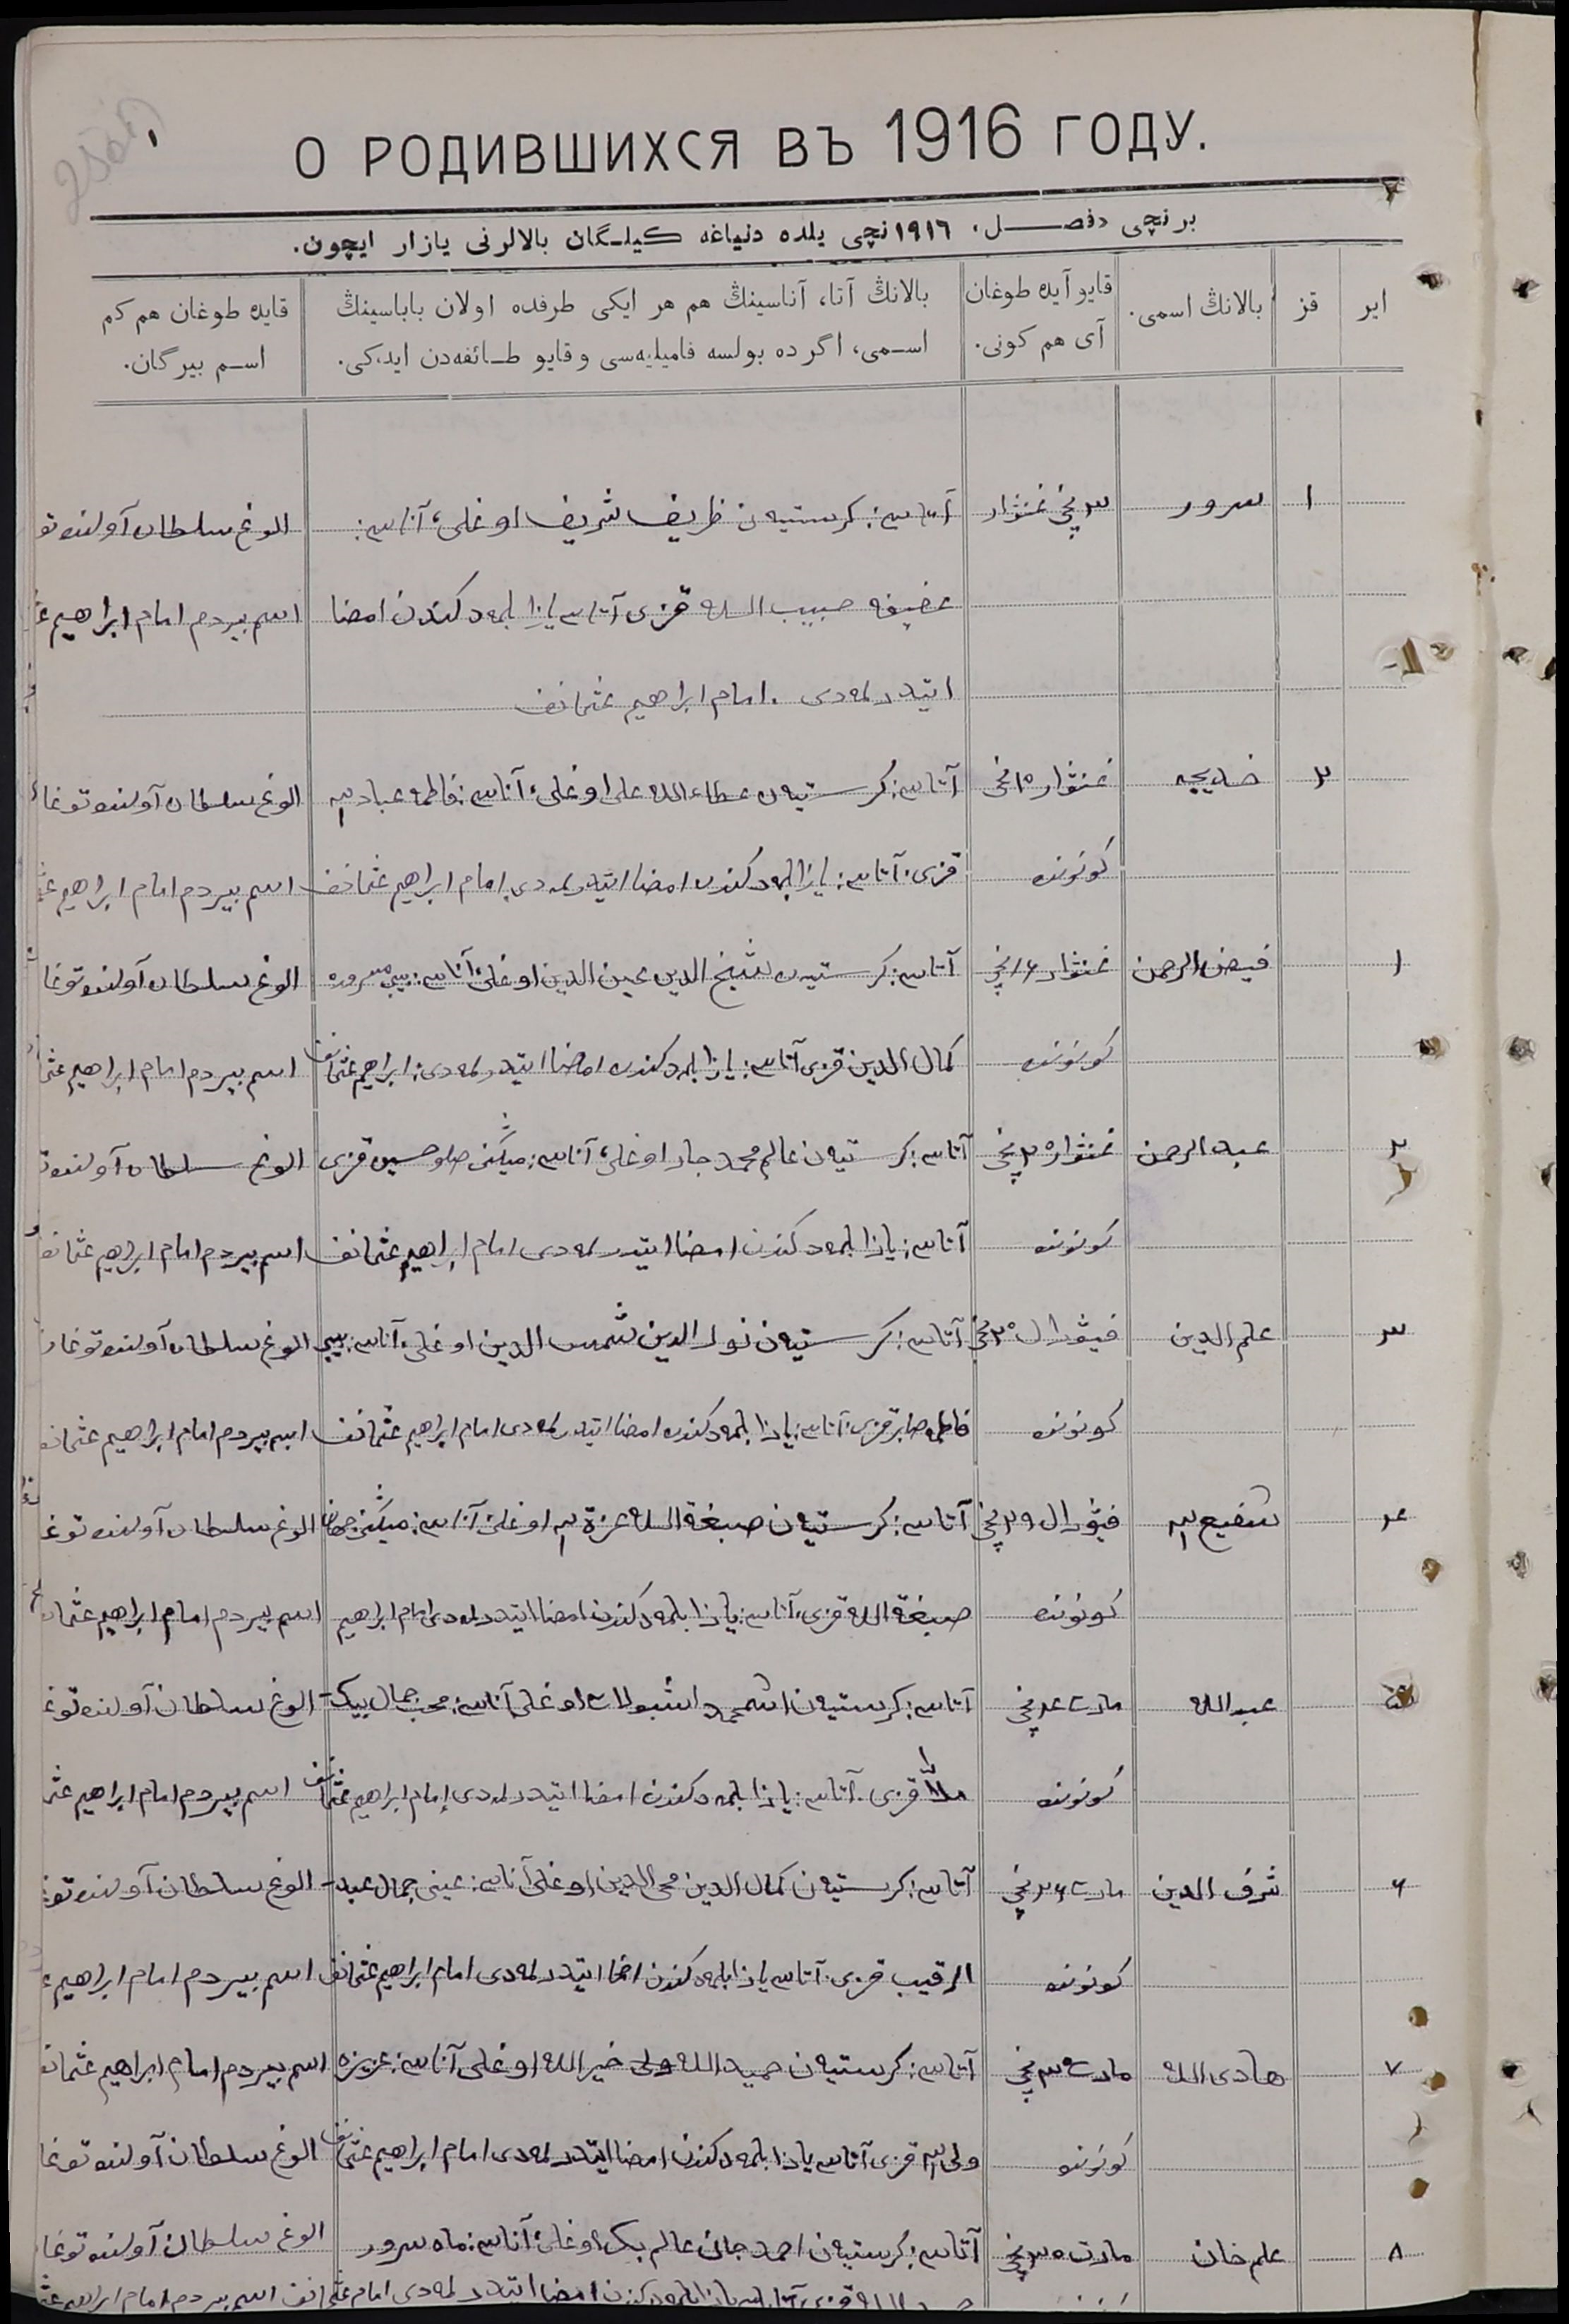 О РОДИВШИХСЯ ВЪ 1916 ГОДУ.
برنچی «فصل» ۱۹۱٦ نچی یلده دنیاغه کیلگان بالالرنی یازار ایچون.
ایر
قز
بالانڭ اسمی.
قایو آیده طوغان
آی هم کونی.
بالانڭ آتا، آناسینڭ هم هر ایکی طرفده اولان باباسینڭ
اسمی، اگر ده بولسه فامیلیه‌سی و قایو طائفه‌دن ایدکی.
قایده طوغان هم کم
اسم بیرگان.
۱ سرور ۳ نچی غنوار آتاسی: کرستیه‌ن ظریف شریف اوغلی، آناسی: الوغ سلطان آولنده تو
عفیفه حبیب الله قزی آتاسی یازا بلمه‌دکندن امضا اسم بیردم امام ابراهیم
ایتدرلمه‌دی. امام ابراهیم عثمانف
۲ خدیجه غنوار ۱۵ نچی آتاسی: کرستیه‌ن عطاءالله علی اوغلی، آناسی: فاطمه عباد الوغ سلطان آولنده توغا
کوننده قزی، آتاسی: یازا بلمه‌دکندن امضا ایتدرلمه‌دی امام ابراهیم عثمانف اسم بیردم امام ابراهیم
۱ فیض الرحمن غنوار ۱۶ نچی آتاسی: کرستیه‌ن شیخ الدین عین الدین اوغلی، آناسی: بیبی سروره الوغ سلطان آولنده توغا
کوننده کمال الدین قزی آتاسی: یازا بلمه‌دکندن امضا ایتدرلمه‌دی: ابراهیم عثمانف اسم بیردم امام ابراهیم
۲ عبدالرحمن غنوار ۲۵ نچی آتاسی: کرستیه‌ن عالم محمد جار اوغلی، آناسی: حسین قزی الوغ سلطان آولنده
کوننده آتاسی: یازا بلمه‌دکندن امضا ایتدرلمه‌دی امام ابراهیم عثمانف اسم بیردم امام ابراهیم عثمانف
۳ علم الدین فیورال ۲۰ نچی آتاسی: کرستیه‌ن نور الدین شمس الدین اوغلی، آناسی: بیبی الوغ سلطان آولنده توغان
کوننده فاطمه صابر قزی، آتاسی: یازا بلمه‌دکندن امضا ایتدرلمه‌دی امام ابراهیم عثمانف اسم بیردم امام ابراهیم عثمانف
۴ شفیع الله فیورال ۲۹ نچی آتاسی: کرستیه‌ن صبغة الله عزة الله اوغلی آناسی: الوغ سلطان آولنده توغ
کوننده صبغة الله قزی، آتاسی: یازا بلمه‌دکندن امضا ایتدرلمه‌دی امام ابراهیم اسم بیردم امام ابراهیم عثمان
۵ عبدالله مارت ۱۴ نچی آتاسی: کرستیه‌ن اشمحمد اشبولات اوغلی آناسی: محب جمال بیک- الوغ سلطان آولنده توغ
کوننده ملا قزی. آتاسی: یازا بلمه‌دکندن امضا ایتدرلمه‌دی امام ابراهیم عثمانف اسم بیردم امام ابراهیم
۶ شرف الدین مارت ۲۶ نچی آتاسی: کرستیه‌ن کمال الدین محی الدین اوغلی آناسی: عینی جمال عبد- الوغ سلطان آولنده توغ
کوننده الرقیب قزی. آتاسی یازا بلمه‌دکندن امضا ایتدرلمه‌دی امام ابراهیم عثمانف اسم بیردم امام ابراهیم
۷ هادی الله مارت ۳ نچی آتاسی: کرستیه‌ن حمیدالله ولی خیرالله اوغلی آناسی: عزیزه اسم بیردم امام ابراهیم عثمانف
کوننده ولی الله قزی آتاسی یازا بلمه‌دکندن امضا ایتدرلمه‌دی امام ابراهیم عثمانف الوغ سلطان آولنده توغا
۸ علم خان مارت ۳۰ نچی آتاسی: کرستیه‌ن احمد جان عالم بک اوغلی آناسی: ماه سرور الوغ سلطان آولنده توغا
قزی، آتاسی یازا بلمه‌دکندن امضا ایتدرلمه‌دی امام عثمانف اسم بیردم امام ابراهیم